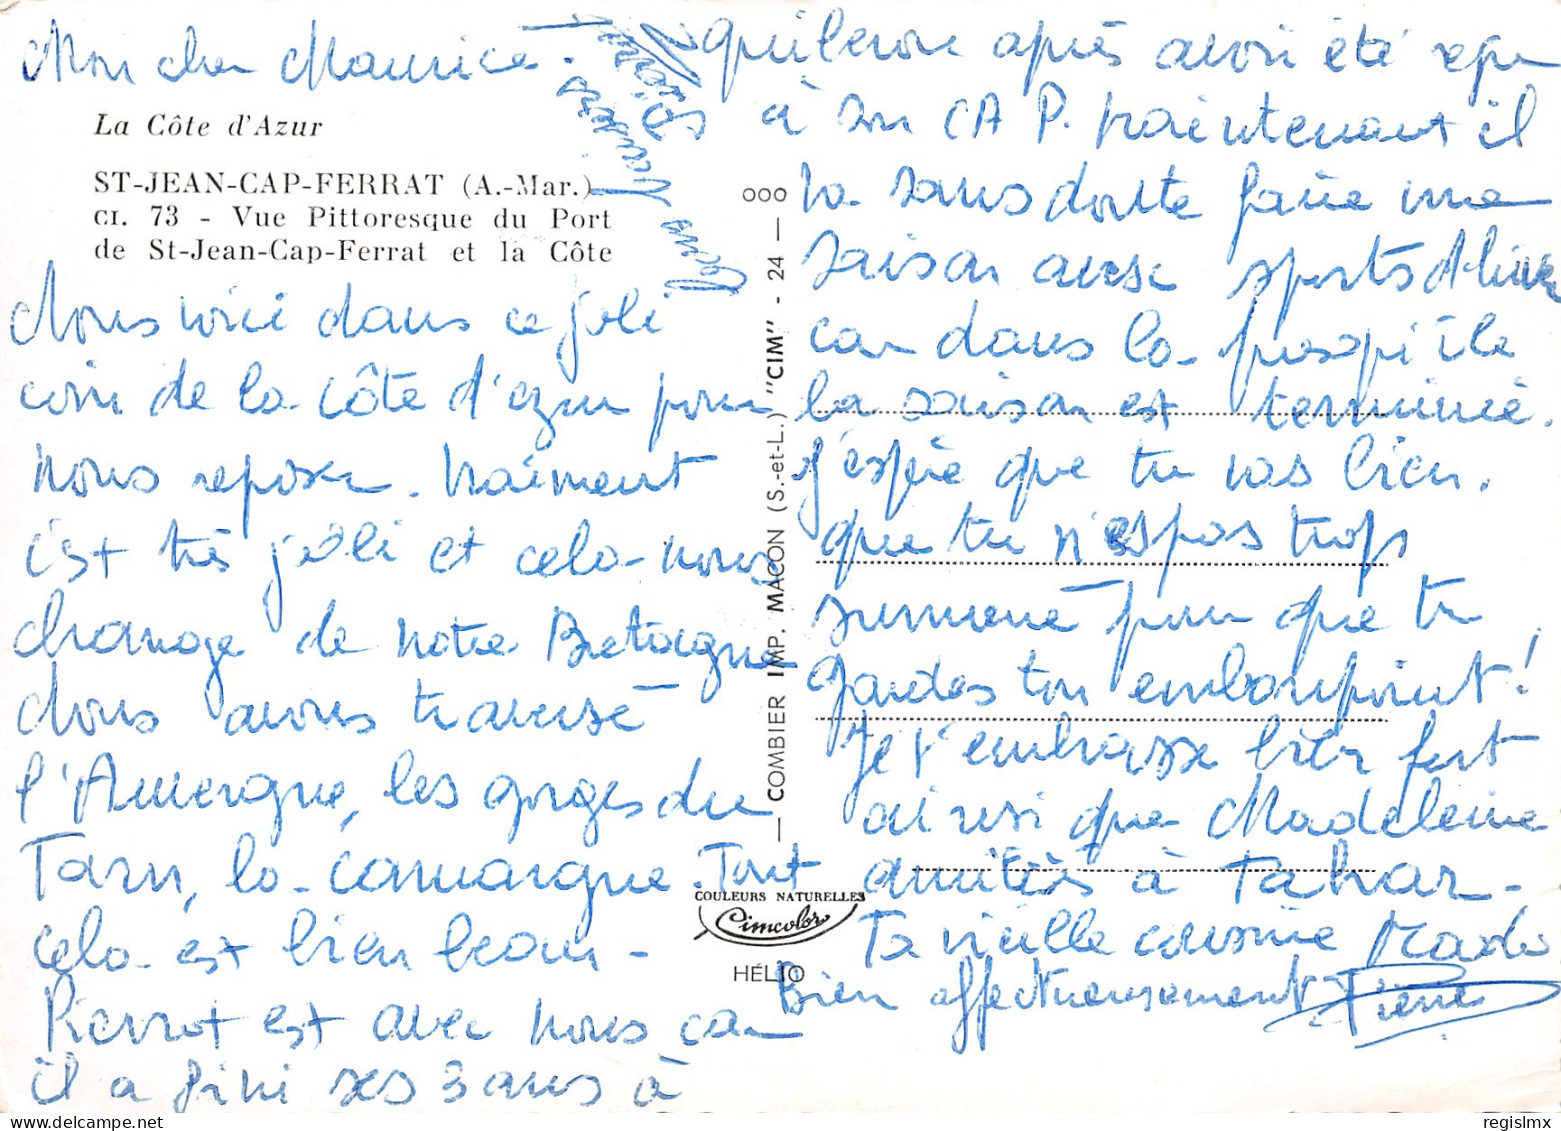 Mon cher Maurice.
La Côte d'Azur
ST-JEAN-CAP-FERRAT (A.-Mar.)
CI. 73 - Vue Pittoresque du Port
de St-Jean-Cap-Ferrat et la Côte
Nous voici dans ce joli
coin de la côte d'azur pour
nous reposer. Vraiment
c'est très joli et cela nous
change de notre Bretagne
Nous avons traversé
l'Auvergne, les gorges du
Tarn, la camargue. Tout
cela est bien beau -
Pierrot est avec nous car
il a fini ses 3 ans à
Quiberon après avoir été reçu
à son CAP. maintenant il
va sans doute faire une
saison avec sports d'hiver
car dans la presqu'île
la saison est terminée.
J'espère que tu vas bien.
que tu n'es pas trop
surmené pour que tu
gardes ton embonpoint!
Je t'embrasse bien fort
ainsi que Madeleine
amitiés à Tahar -
Ta vieille cousine Mado
Bien affectueusement Pierre
000 — COMBIER IMP. MACON (S.-et-L.) "CIM" - 24 —
COULEURS NATURELLES
Cimcolor
HÉLIO
regislmx